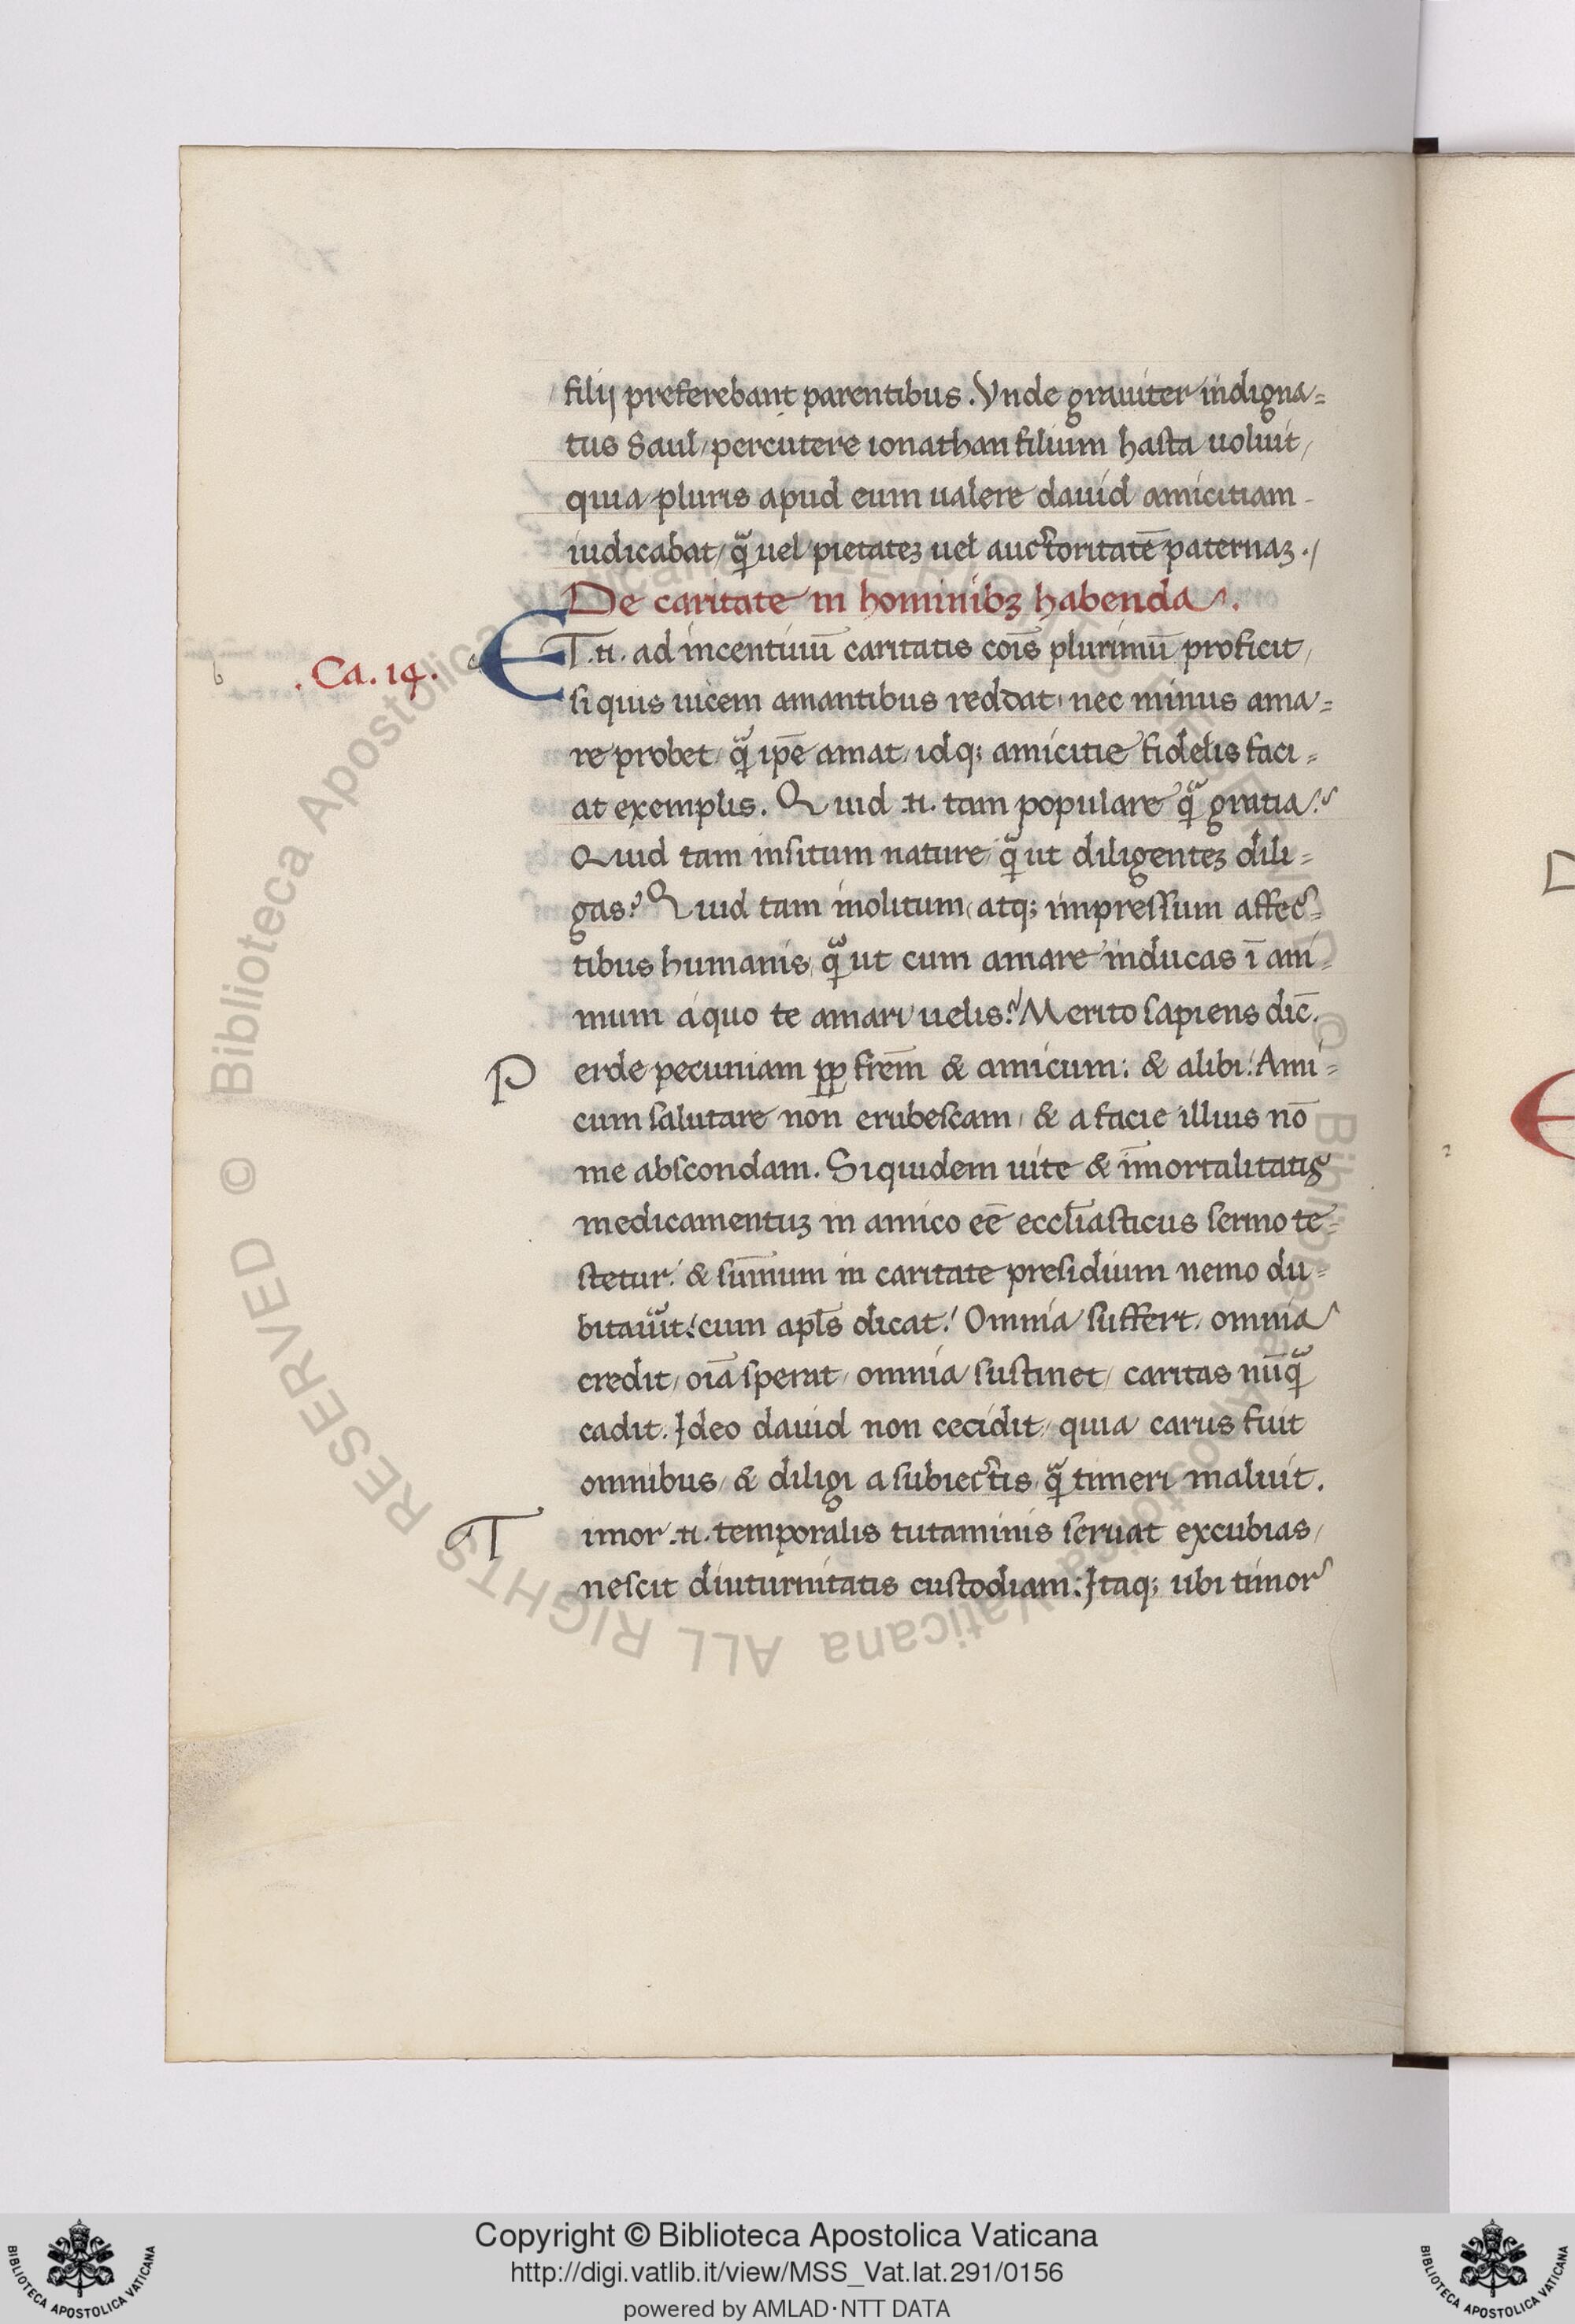 filij preferebant parentibus. Vnde grauiter indigna=
tus Saul/ percutere ionathan filium hasta uoluit/
quia pluris apud eum ualere dauid amicitiam
iudicabat/ qͣ uel pietateꝫ uel auctoritatē paternaꝫ./
De caritate in hominibꝫ habenda.
. Ca. 14.
ET .n. ad incentiuū caritatis cōis plurimū proficit/
si quis uicem amantibus reddat/ nec minus ama=
re probet/ qͣ ip̄e amat/ idq; amicitie fidelis faci=
at exemplis. Quid .n. tam populare qͣ gratia?
Quid tam insitum nature/ qͣ ut diligenteꝫ dili=
gas? Quid tam inolitum/ atq; impressum affec=
tibus humanis/ qͣ ut eum amare inducas ī ani=
mum a quo te amari uelis? Merito sapiens dic̄.
Perde pecuniam ꝓꝑ frēm & amicum: & alibi: Ami=
cum salutare non erubescam/ & a facie illius nō
me abscondam. Siquidem uite & īmortalitatis
medicamentuꝫ in amico eē eccl̄iasticus sermo te=
stetur: & sūmum in caritate presidium nemo du=
bitauͣit: cum apl̄s dicat: Omnia suffert. omnia
credit/ oīa sperat/ omnia sustinet/ caritas nūqͣ
cadit. Ideo dauid non cecidit/ quia carus fuit
omnibus/ & diligi a subiectis/ qͣ timeri maluit.
Timor .n. temporalis tutaminis seruat excubias/
nescit diuturnitatis custodiam: Itaq; ubi timor
© Biblioteca Apostolica Vaticana ALL RIGHTS RESERVED
Copyright © Biblioteca Apostolica Vaticana
http://digi.vatlib.it/view/MSS_Vat.lat.291/0156
powered by AMLAD·NTT DATA
BIBLIOTECA APOSTOLICA VATICANA
BIBLIOTECA APOSTOLICA VATICANA